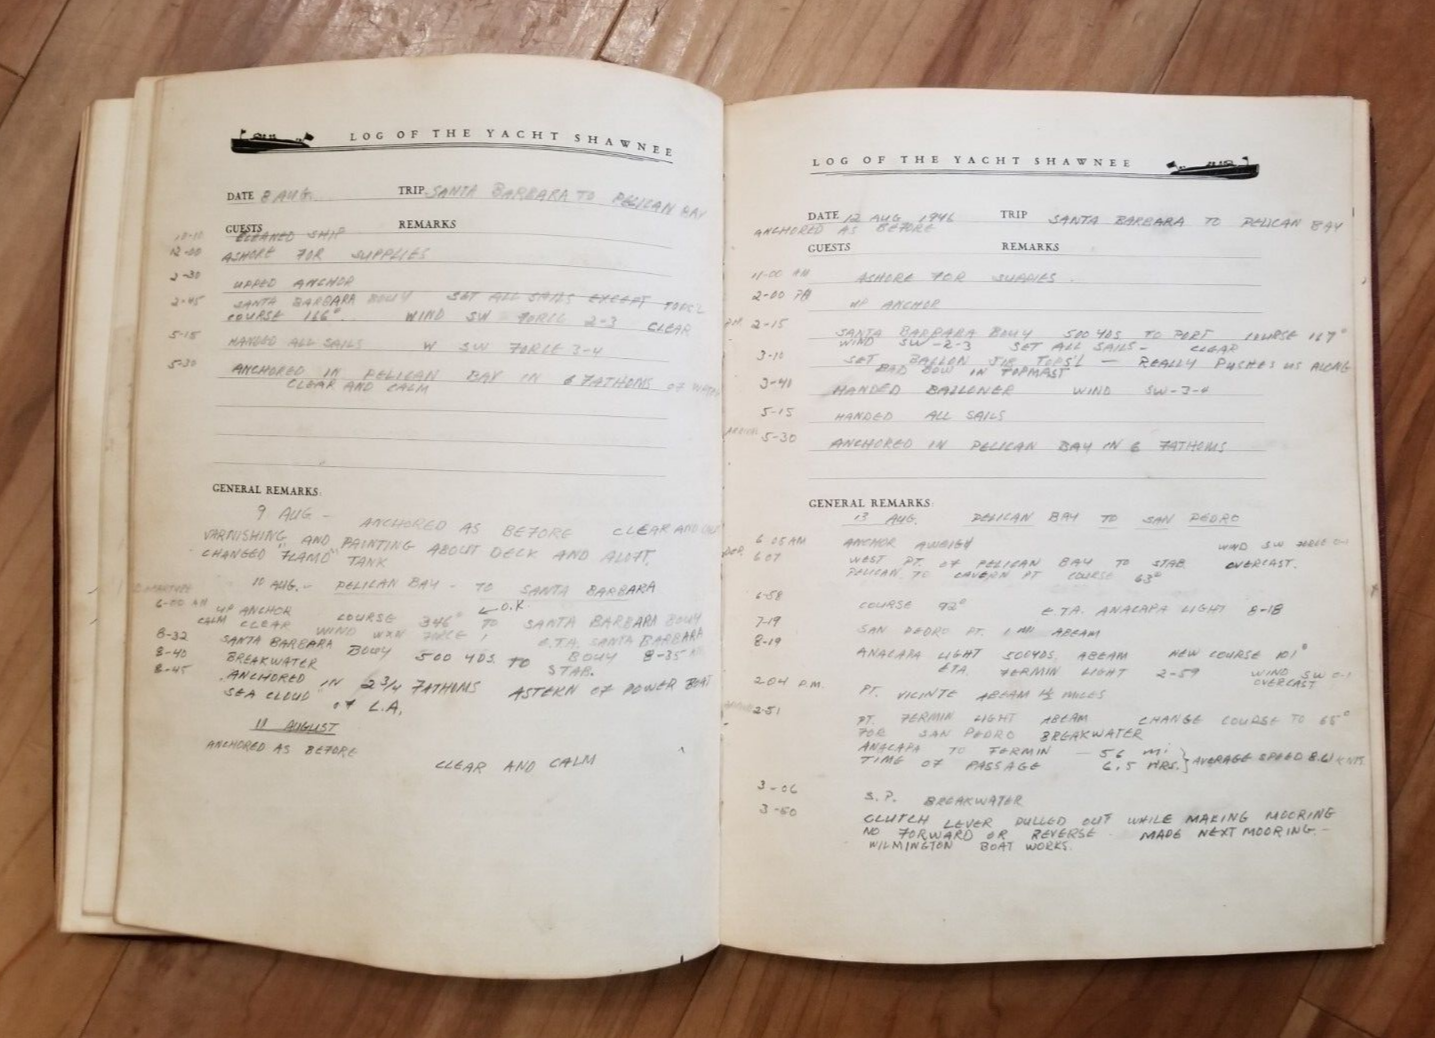 LOG OF THE YACHT SHAWNEE
DATE 8 AUG. TRIP SANTA BARBARA TO PELICAN BAY
GUESTS REMARKS
10-10 CLEANED SHIP
12-00 ASHORE FOR SUPPLIES
2-30 UPPED ANCHOR
2-45 SANTA BARBARA BOUY SET ALL SAILS EXCEPT TOPS'L
COURSE 166° WIND SW FORCE 2-3 CLEAR
5-15 HANDED ALL SAILS W SW FORCE 3-4
5-30 ANCHORED IN PELICAN BAY IN 6 FATHOMS OF WATER
CLEAR AND CALM
GENERAL REMARKS:
9 AUG - ANCHORED AS BEFORE CLEAR AND CALM
VARNISHING AND PAINTING ABOUT DECK AND ALOFT.
CHANGED "FLAMO" TANK
DEPARTURE 10 AUG. - PELICAN BAY - TO SANTA BARBARA
6-00 AM UP ANCHOR COURSE 346° TO SANTA BARBARA BOUY
O.K.
CALM CLEAR WIND WXN FORCE 1 E.T.A. SANTA BARBARA
BOUY 8-35
8-32 SANTA BARBARA BOUY 500 YDS. TO STAB.
8-40 BREAKWATER
8-45 ANCHORED IN 2 3/4 FATHOMS ASTERN OF POWER BOAT
SEA CLOUD OF L.A.
11 AUGUST
ANCHORED AS BEFORE
CLEAR AND CALM
LOG OF THE YACHT SHAWNEE
DATE 12 AUG, 1946 TRIP SANTA BARBARA TO PELICAN BAY
ANCHORED AS BEFORE
GUESTS REMARKS
11-00 AM ASHORE FOR SUPPLIES.
2-00 PM UP ANCHOR
PM 2-15 SANTA BARBARA BOUY 500 YDS TO PORT COURSE 167°
WIND SW-2-3 SET ALL SAILS - CLEAR
3-10 SET BALLON JIB TOPS'L - REALLY PUSHES US ALONG
BAD BOW IN TOPMAST
3-40 HANDED BALLONER WIND SW-3-4
5-15 HANDED ALL SAILS
ARRIVAL 5-30 ANCHORED IN PELICAN BAY IN 6 FATHOMS
GENERAL REMARKS:
13 AUG. PELICAN BAY TO SAN PEDRO
6 05 AM ANCHOR AWEIGH WIND SW FORCE 0-1
6 07 WEST PT. OF PELICAN BAY TO STAB. OVERCAST.
PELICAN TO CAVERN PT COURSE 63°
6-58 COURSE 92° E.T.A. ANACAPA LIGHT 8-18
7-19 SAN PEDRO PT. 1 MI ABEAM
8-19 ANACAPA LIGHT 50CYDS. ABEAM NEW COURSE 101°
ETA. FERMIN LIGHT 2-59 WIND SW 0-1
OVERCAST
2 04 P.M. PT. VICINTE ABEAM 1½ MILES
2-51 PT. FERMIN LIGHT ABEAM CHANGE COURSE TO 65°
FOR SAN PEDRO BREAKWATER
ANACAPA TO FERMIN - 56 MI
TIME OF PASSAGE 6.5 HRS. } AVERAGE SPEED 8.61 KNTS.
3-06 S.P. BREAKWATER
3-50 CLUTCH LEVER PULLED OUT WHILE MAKING MOORING
NO FORWARD OR REVERSE MADE NEXT MOORING -
WILMINGTON BOAT WORKS.